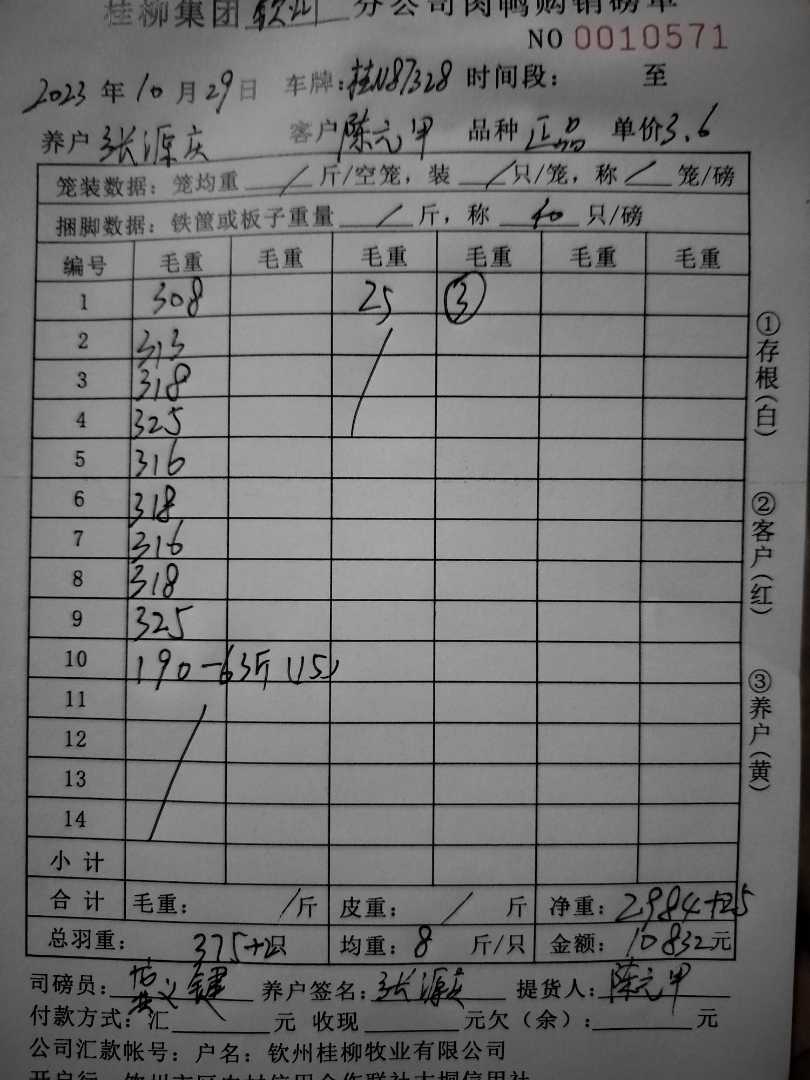 桂柳集团钦州分公司肉鸭购销磅单
NO 0010571
2023年10月29日 车牌:桂N87328 时间段: 至
养户 张源庆 客户 陈元甲 品种 正品 单价3.6
笼装数据:笼均重 / 斤/空笼,装 / 只/笼,称 / 笼/磅
捆脚数据:铁筐或板子重量 / 斤,称 40 只/磅
编号 毛重 毛重 毛重 毛重 毛重 毛重
1 308 25 ③
2 313
3 318
4 325
5 316
6 318
7 316
8 318
9 325
10 190-63斤(15)
11
12
13
14
小计
合计 毛重: /斤 皮重: / 斤 净重:2984+25
总羽重: 375+2只 均重:8 斤/只 金额:10832元
司磅员: 义键 养户签名:张源庆 提货人:陈元甲
付款方式:汇 元 收现 元欠(余): 元
公司汇款帐号:户名:钦州桂柳牧业有限公司
①存根(白)
②客户(红)
③养户(黄)